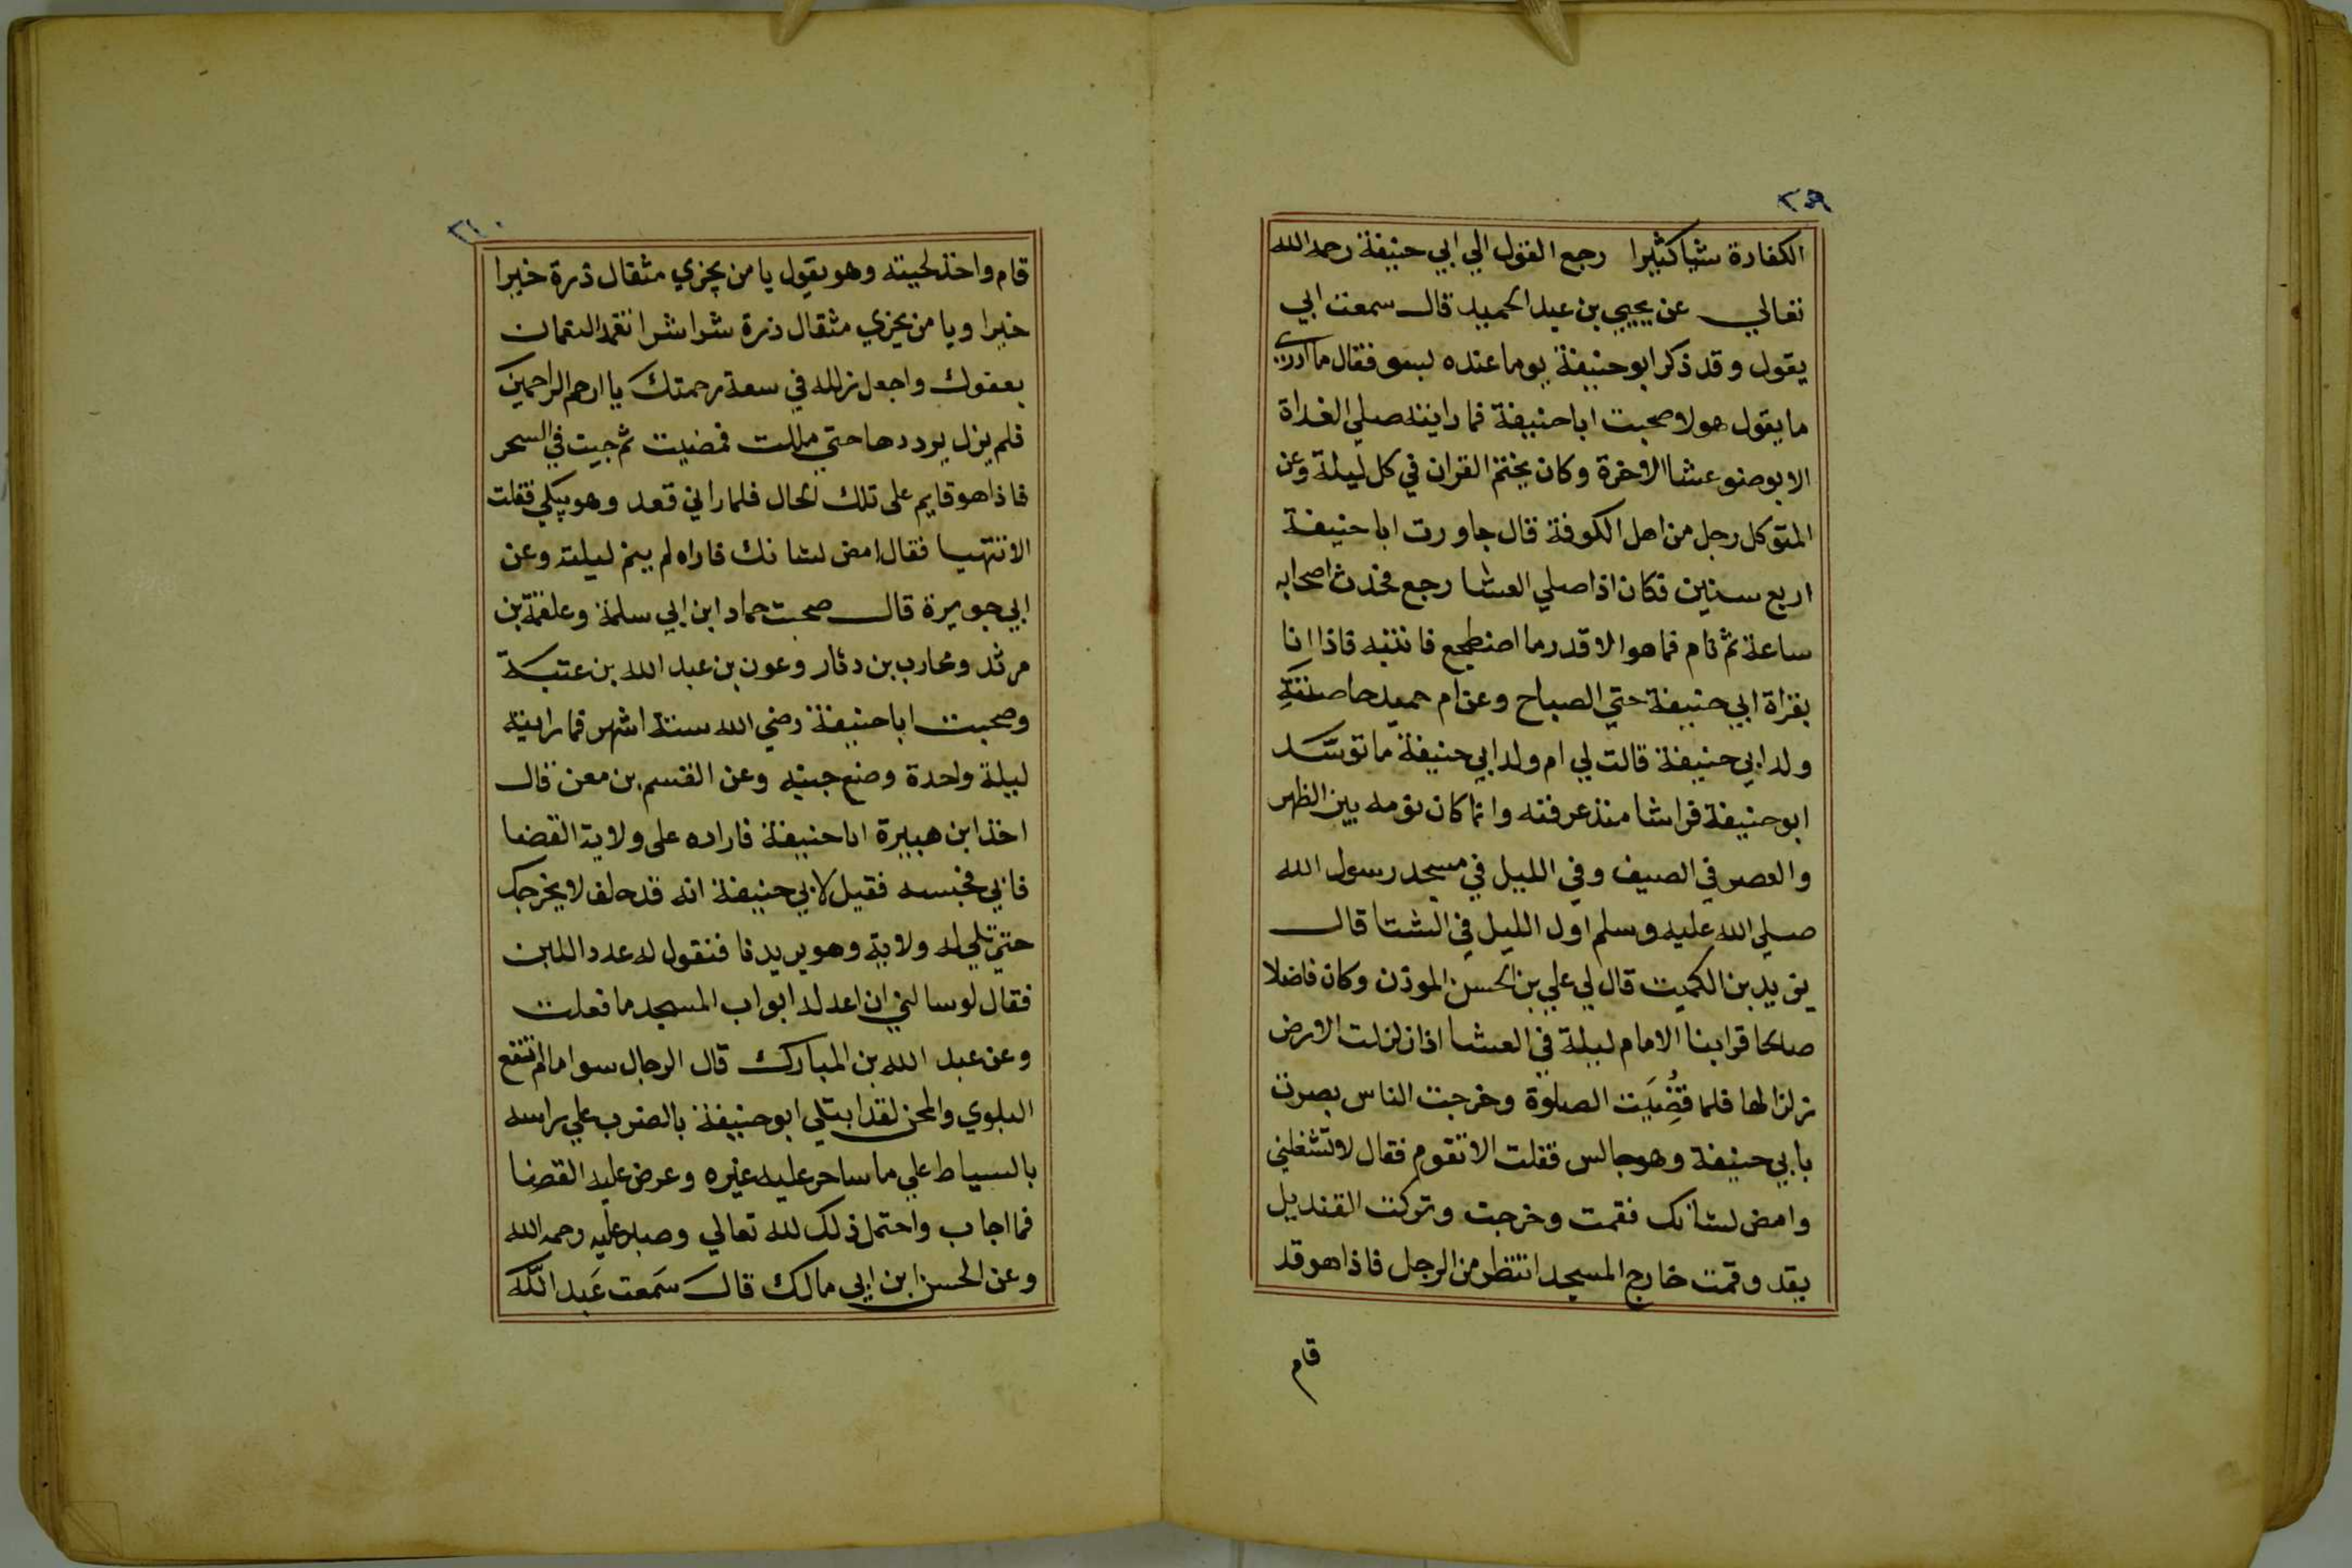 ٢٥٩
الكفارة شيا كثيرا رجع القول الي ابي حنيفة رحمه الله
تعالي عن يحيي بن عبد الحميد قال سمعت ابي
يقول وقد ذكر ابو حنيفة يوما عنده بسو فقال ما ادري
ما يقول هولا صحبت ابا حنيفة فما رايته صلي الغداة
الا بوضو عشا الاخرة وكان يختم القران في كل ليلة وعن
المتوكل رجل من اهل الكوفة قال جاورت ابا حنيفة
اربع سنين فكان اذا صلي العشا رجع فحدث اصحابه
ساعة ثم نام فما هو الا قدر ما اضطجع فانتبه فاذا انا
بقراة ابي حنيفة حتي الصباح وعن ام حميد حاضنة
ولد ابي حنيفة قالت لي ام ولد ابي حنيفة ما توسد
ابو حنيفة فراشا منذ عرفته وانما كان نومه بين الظهر
والعصر في الصيف وفي الليل في مسجد رسول الله
صلي الله عليه وسلم اول الليل في الشتا قال
يزيد بن الكميت قال لي علي بن الحسن الموذن وكان فاضلا
صالحا قرا بنا الامام ليلة في العشا اذا زلزلت الارض
زلزالها فلما قُضِيَت الصلوة وخرجت الناس بصرت
بابي حنيفة وهو جالس فقلت الا تقوم فقال لا تشغلني
وامض لشانك فقمت وخرجت وتركت القنديل
يقد وقمت خارج المسجد انتظر من الرجل فاذا هو قد
قام
٢٦٠
قام واخذ لحيته وهو يقول يا من يجزي مثقال ذرة خيرا
خيرا ويا من يجزي مثقال ذرة شرا شرا تغمد النعمان
بعفوك واجعل نزله في سعة رحمتك يا ارحم الراحمين
فلم يزل يرددها حتي مللت فمضيت ثم جيت في السحر
فاذا هو قايم على تلك الحال فلما راني قعد وهو يبكي فقلت
الا تنتهيا فقال امض لشانك فاراه لم ينم ليلته وعن
ابي جويرة قال صحبت حماد ابن ابي سلمة وعلقمة بن
مرثد ومحارب بن دثار وعون بن عبد الله بن عتبة
وصحبت ابا حنيفة رضي الله ستة اشهر فما رايته
ليلة واحدة وضع جبنه وعن القسم بن معن قال
اخذ ابن هبيرة ابا حنيفة فاراده على ولاية القضا
فابي فحبسه فقيل لابي حنيفة انه قد حلف لا يخرجك
حتي تلي له ولاية وهو يريدنا فنقول له عدد اللبن
فقال لو سالني ان اعد له ابواب المسجد ما فعلت
وعن عبد الله بن المبارك قال الرجال سوا ما لم تقع
البلوي والمحن لقد ابتلي ابو حنيفة بالضرب علي راسه
بالسياط علي ما ساحر عليه غيره وعرض عليه القضا
فما اجاب واحتمل ذلك لله تعالي وصبر عليه رحمه الله
وعن الحسن ابن ابي مالك قال سَمعت عَبد اللّه